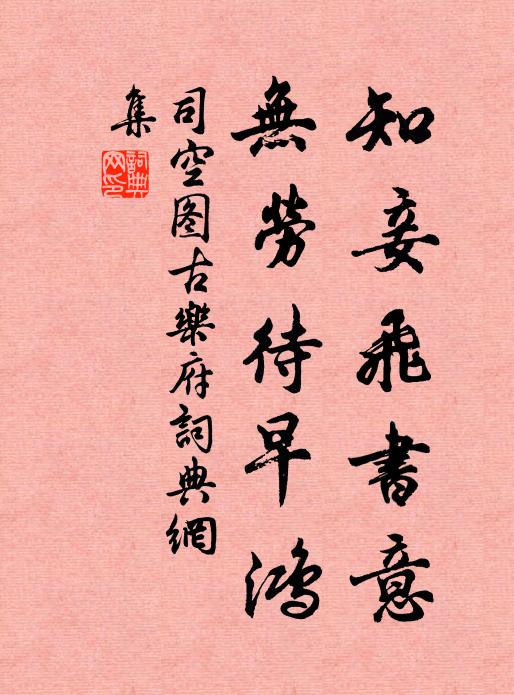 知妾飛書意
無勞待早鴻
司空图古樂府詞典網
集
詞典
网印